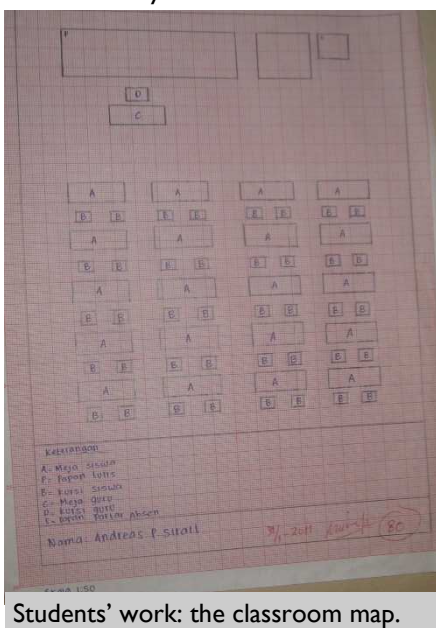 P
D
C
A A A A
B B B B B B B B
A A A A
B B B B B B B B
A A A A
B B B B B B B B
A A A A
B B B B B B B B
A A A A
B B B B B B B B
Keterangan
A = Meja siswa
P = Papan tulis
B = Kursi siswa
C = Meja guru
D = Kursi guru
Absen
Nama: Andreas P.
80
1:50
Students' work: the classroom map.